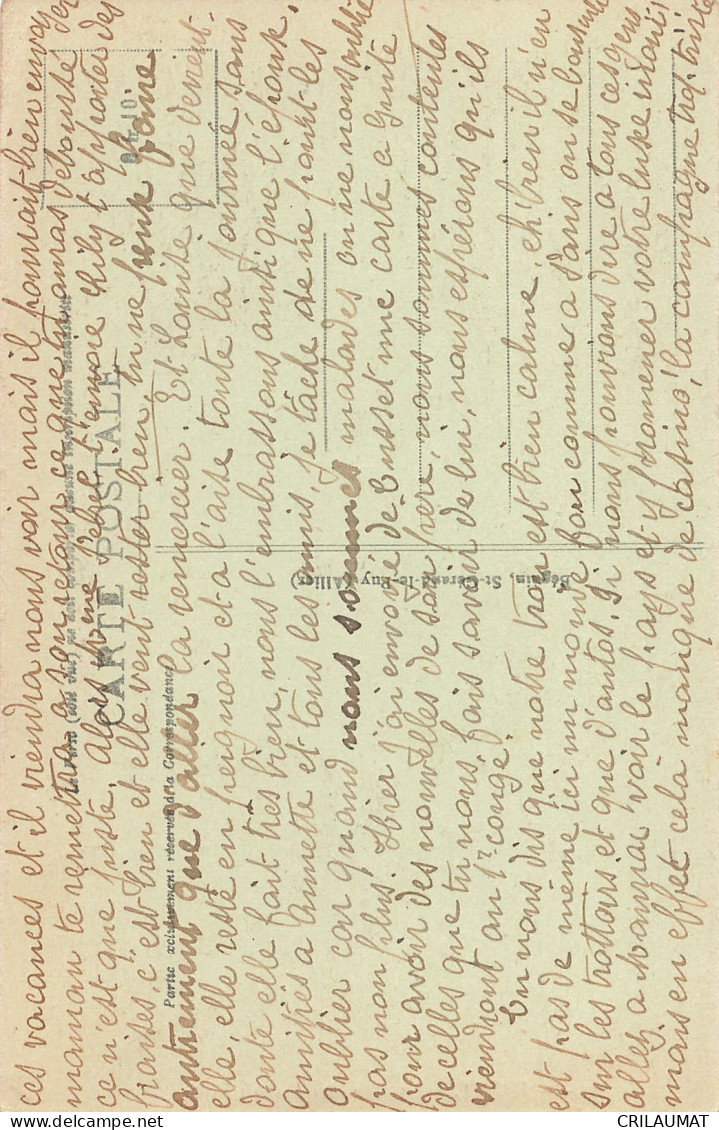 ces vacances et il viendra nous voir mais il pourrait bien envoyer
maman te remettra a son retour ce que tu auras débourse
ce n'est que juste. Alors meme Pebel t'envoie Lily t'apporter des
fraises c'est bien et elle veut rester bien, tu ne peux faire
autrement que d'aller la remercier. Et Louise que devient-
elle, elle reste en peignoir et a l'aise toute la journée sans
doute elle fait très bien, nous l'embrassons ainsi que l'époux.
Amitiés a Annette et tous les amis, je tâche de ne point les
oublier car quand nous sommes malades on ne nous oublie
pas non plus. Hier j'ai envoyé de Busset une carte a
pour avoir des nouvelles de son frère, nous sommes contentes
de celles que tu nous fais savoir de lui, nous espérons qu'ils
viendront au 1r congé.
Tu nous dis que notre trou est bien calme, eh bien il n'en
est pas de même ici un monde fou comme a Paris on se bouscule
sur les trottoirs et que d'autos. Si nous pouvions dire a tous ces gens
allez a voir le pays et y promener votre luxe
mais en effet cela manque de casino, la campagne trop triste
CARTE POSTALE
Partie exclusivement réservée à la Correspondance
Béguin, St-Gérand-le-Puy (Allier)
0 fr. 10
CRILAUMAT